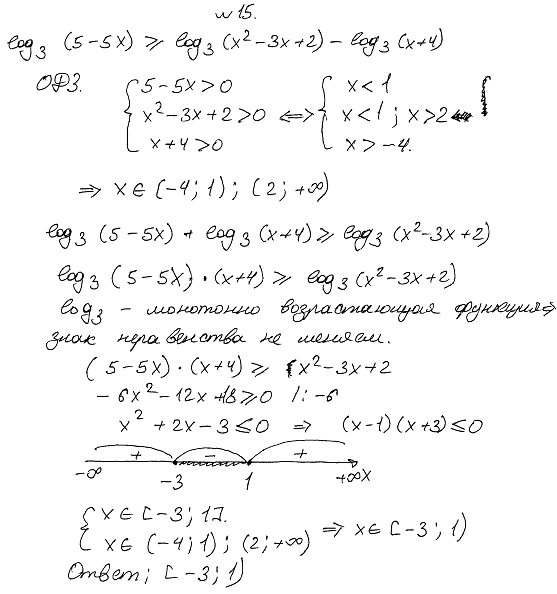 №15.
log₃ (5-5x) ⩾ log₃ (x²-3x+2) - log₃ (x+4)
ОДЗ. { 5-5x>0 { x<1
x²-3x+2>0 ⟺ x<1 ; x>2
x+4>0 x>-4.
⇒ x∈(-4; 1) ; (2; +∞)
log₃ (5-5x) + log₃ (x+4) ⩾ log₃ (x²-3x+2)
log₃ (5-5x) · (x+4) ⩾ log₃ (x²-3x+2)
log₃ - монотонно возрастающая функция ⇒
знак неравенства не меняем.
(5-5x) · (x+4) ⩾ x²-3x+2
-6x²-12x+18⩾0 /: -6
x²+2x-3⩽0 ⇒ (x-1)(x+3)⩽0
+ - +
-∞ -3 1 +∞ x
{ x∈[-3; 1].
x∈(-4; 1) ; (2; +∞) ⇒ x∈[-3; 1)
Ответ; [-3; 1)